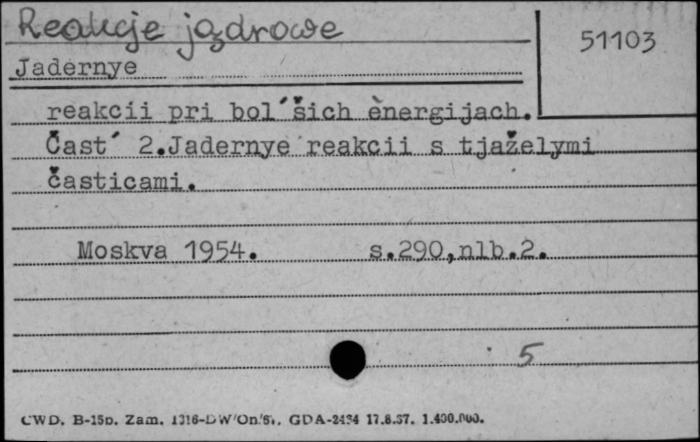 Reakcje jądrowe
51103
Jadernye
reakcii pri bol´šich ènergijach.
Čast´ 2.Jadernye reakcii s tjaželymi
časticami.
Moskva 1954. s.290,nlb.2.
5
CWD. B-15b. Zam. GDA-2434 17.8.57. 1.400.000.